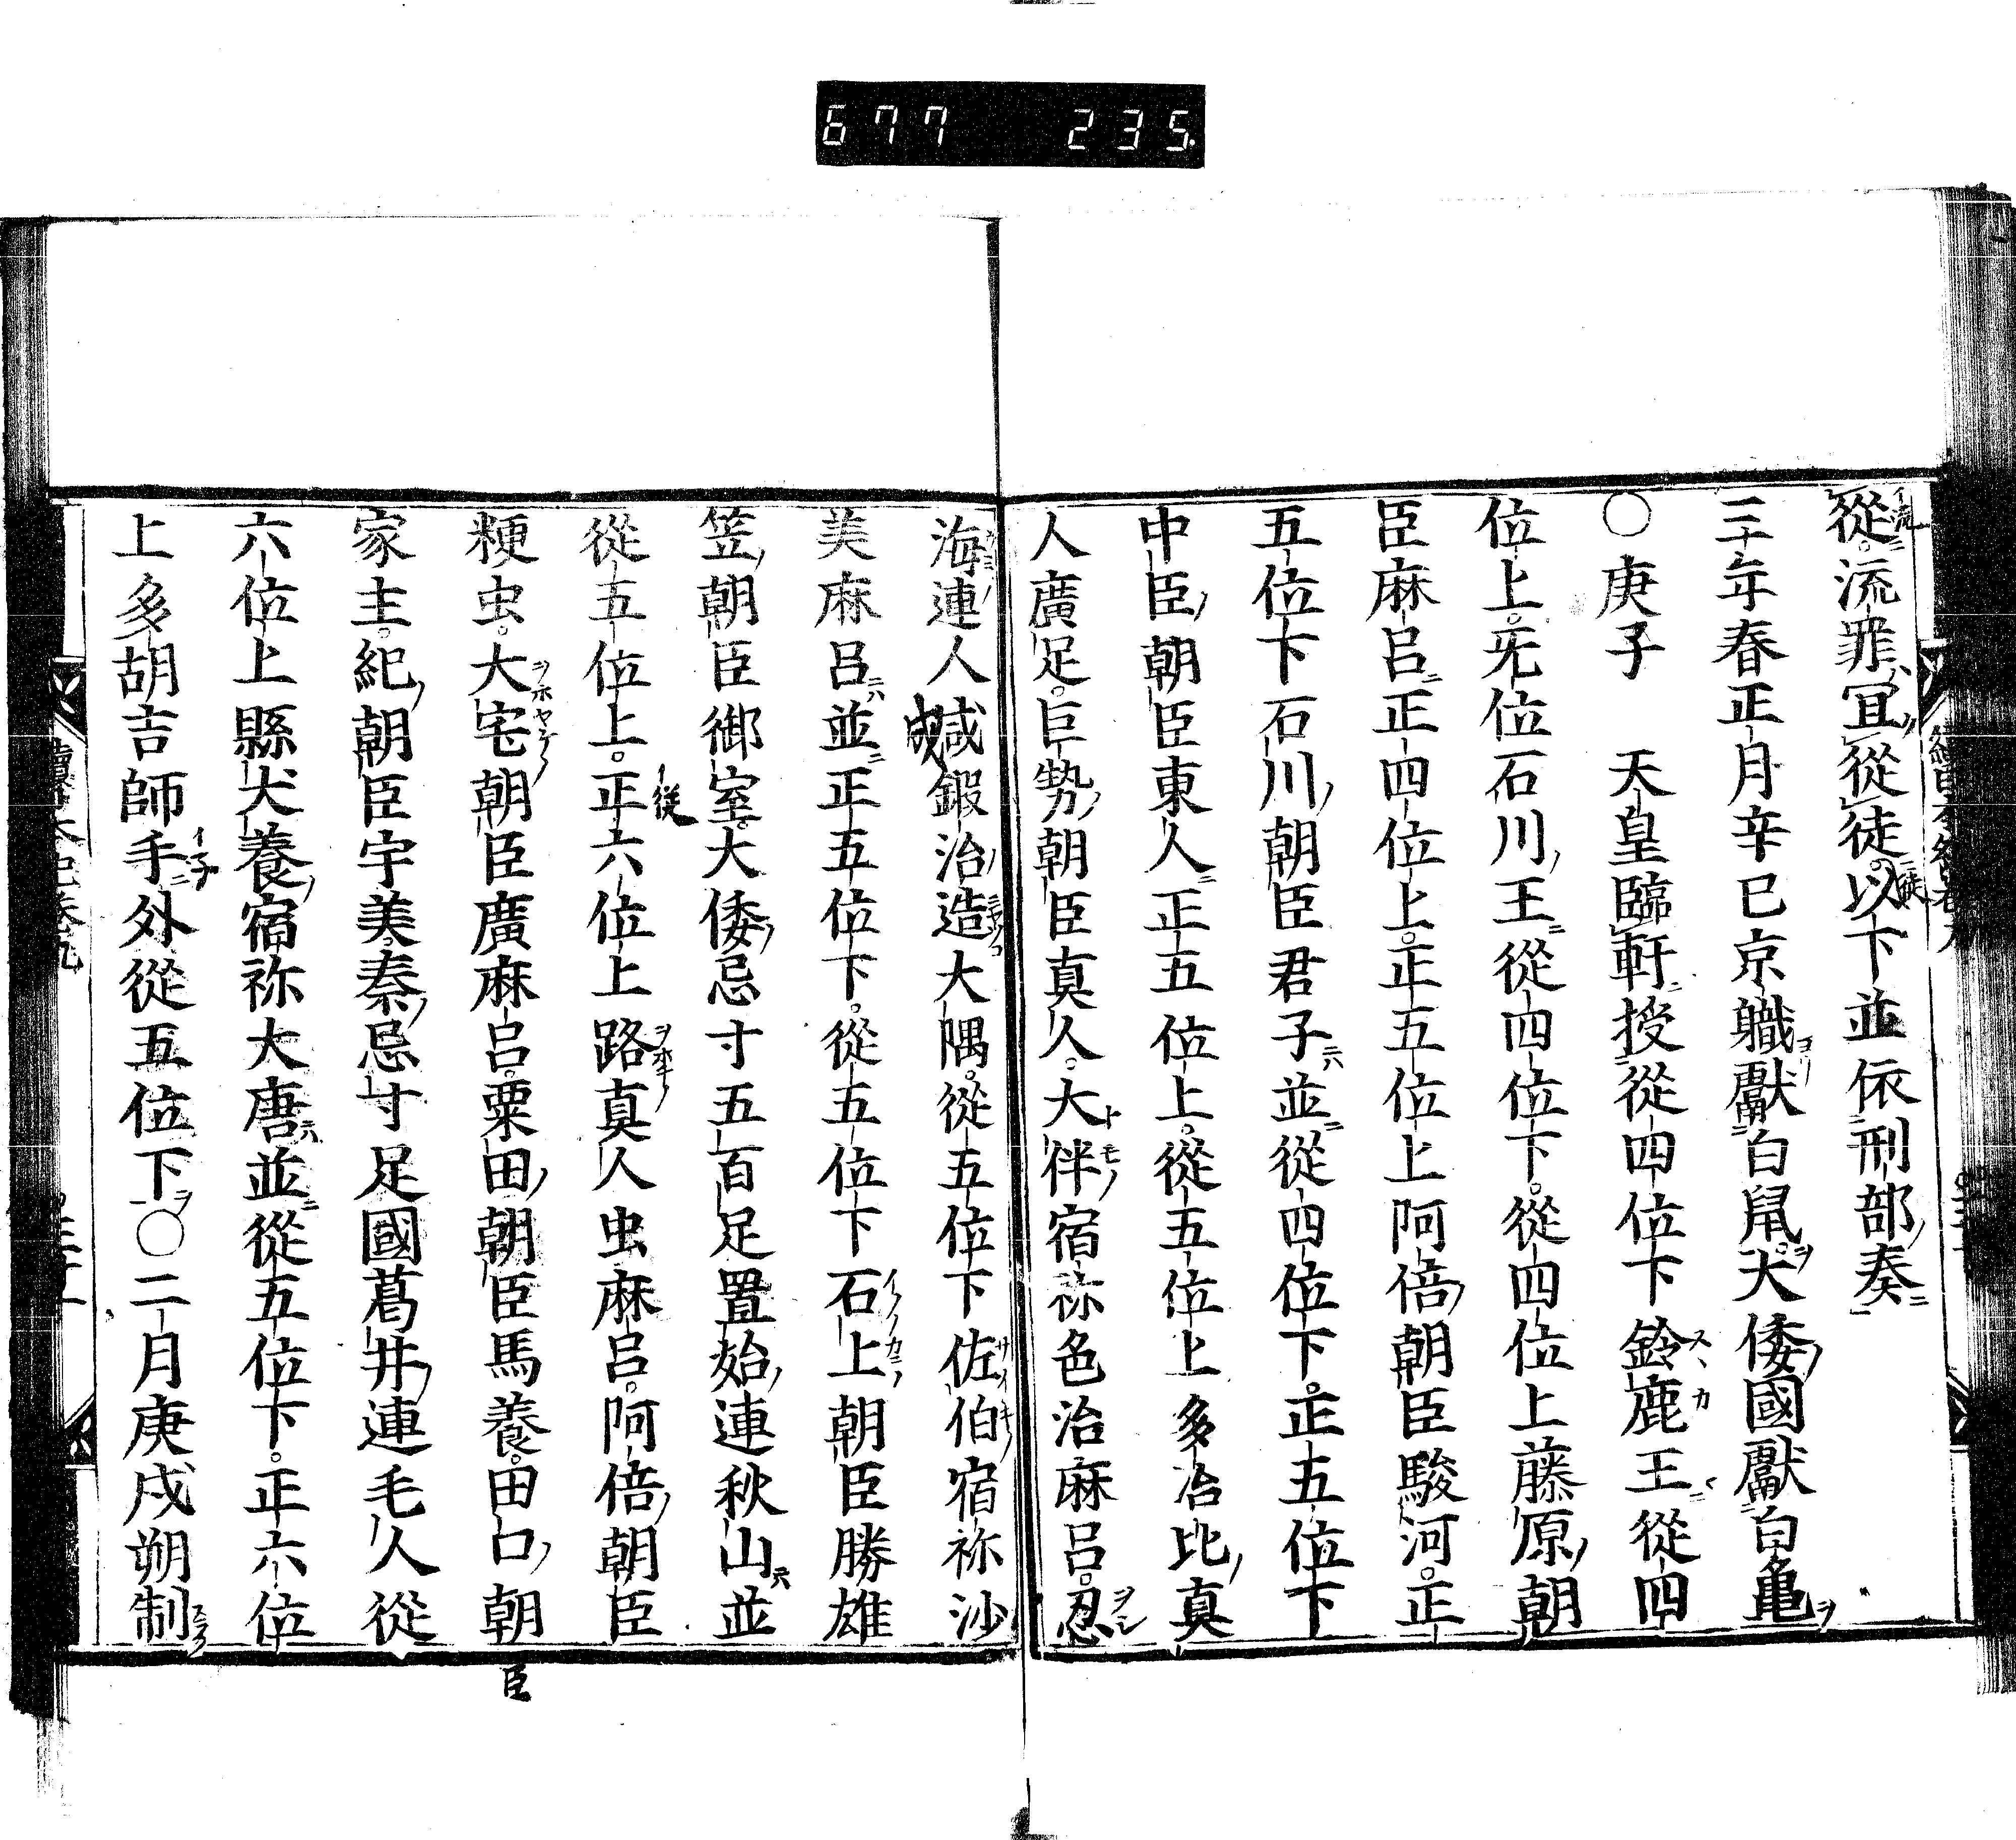 677 235
從流罪冝從徒以下並依刑部奏
三年春正月辛巳京職獻白䑕大倭國獻白龜
○庚子 天皇臨軒授從四位下鈴鹿王從四
位上无位石川王從四位下從四位上藤原朝
臣麻呂正四位上正五位上阿倍朝臣駿河正
五位下石川朝臣君子並從四位下正五位下
中臣朝臣東人正五位上從五位上多治比真
人廣足巨勢朝臣真人大伴宿祢色治麻呂忍
海連人成鍜治造大隅從五位下佐伯宿祢沙
美麻呂並正五位下從五位下石上朝臣勝雄
笠朝臣御室大倭忌寸五百足置始連秋山並
從五位上正六位上路真人虫麻呂阿倍朝臣
粳虫大宅朝臣廣麻呂粟田朝臣馬養田口朝臣
家主紀朝臣宇美秦忌寸足國葛井連毛人從
六位上縣犬養宿祢大唐並從五位下正六位
上多胡吉師手外從五位下○二月庚戌朔制